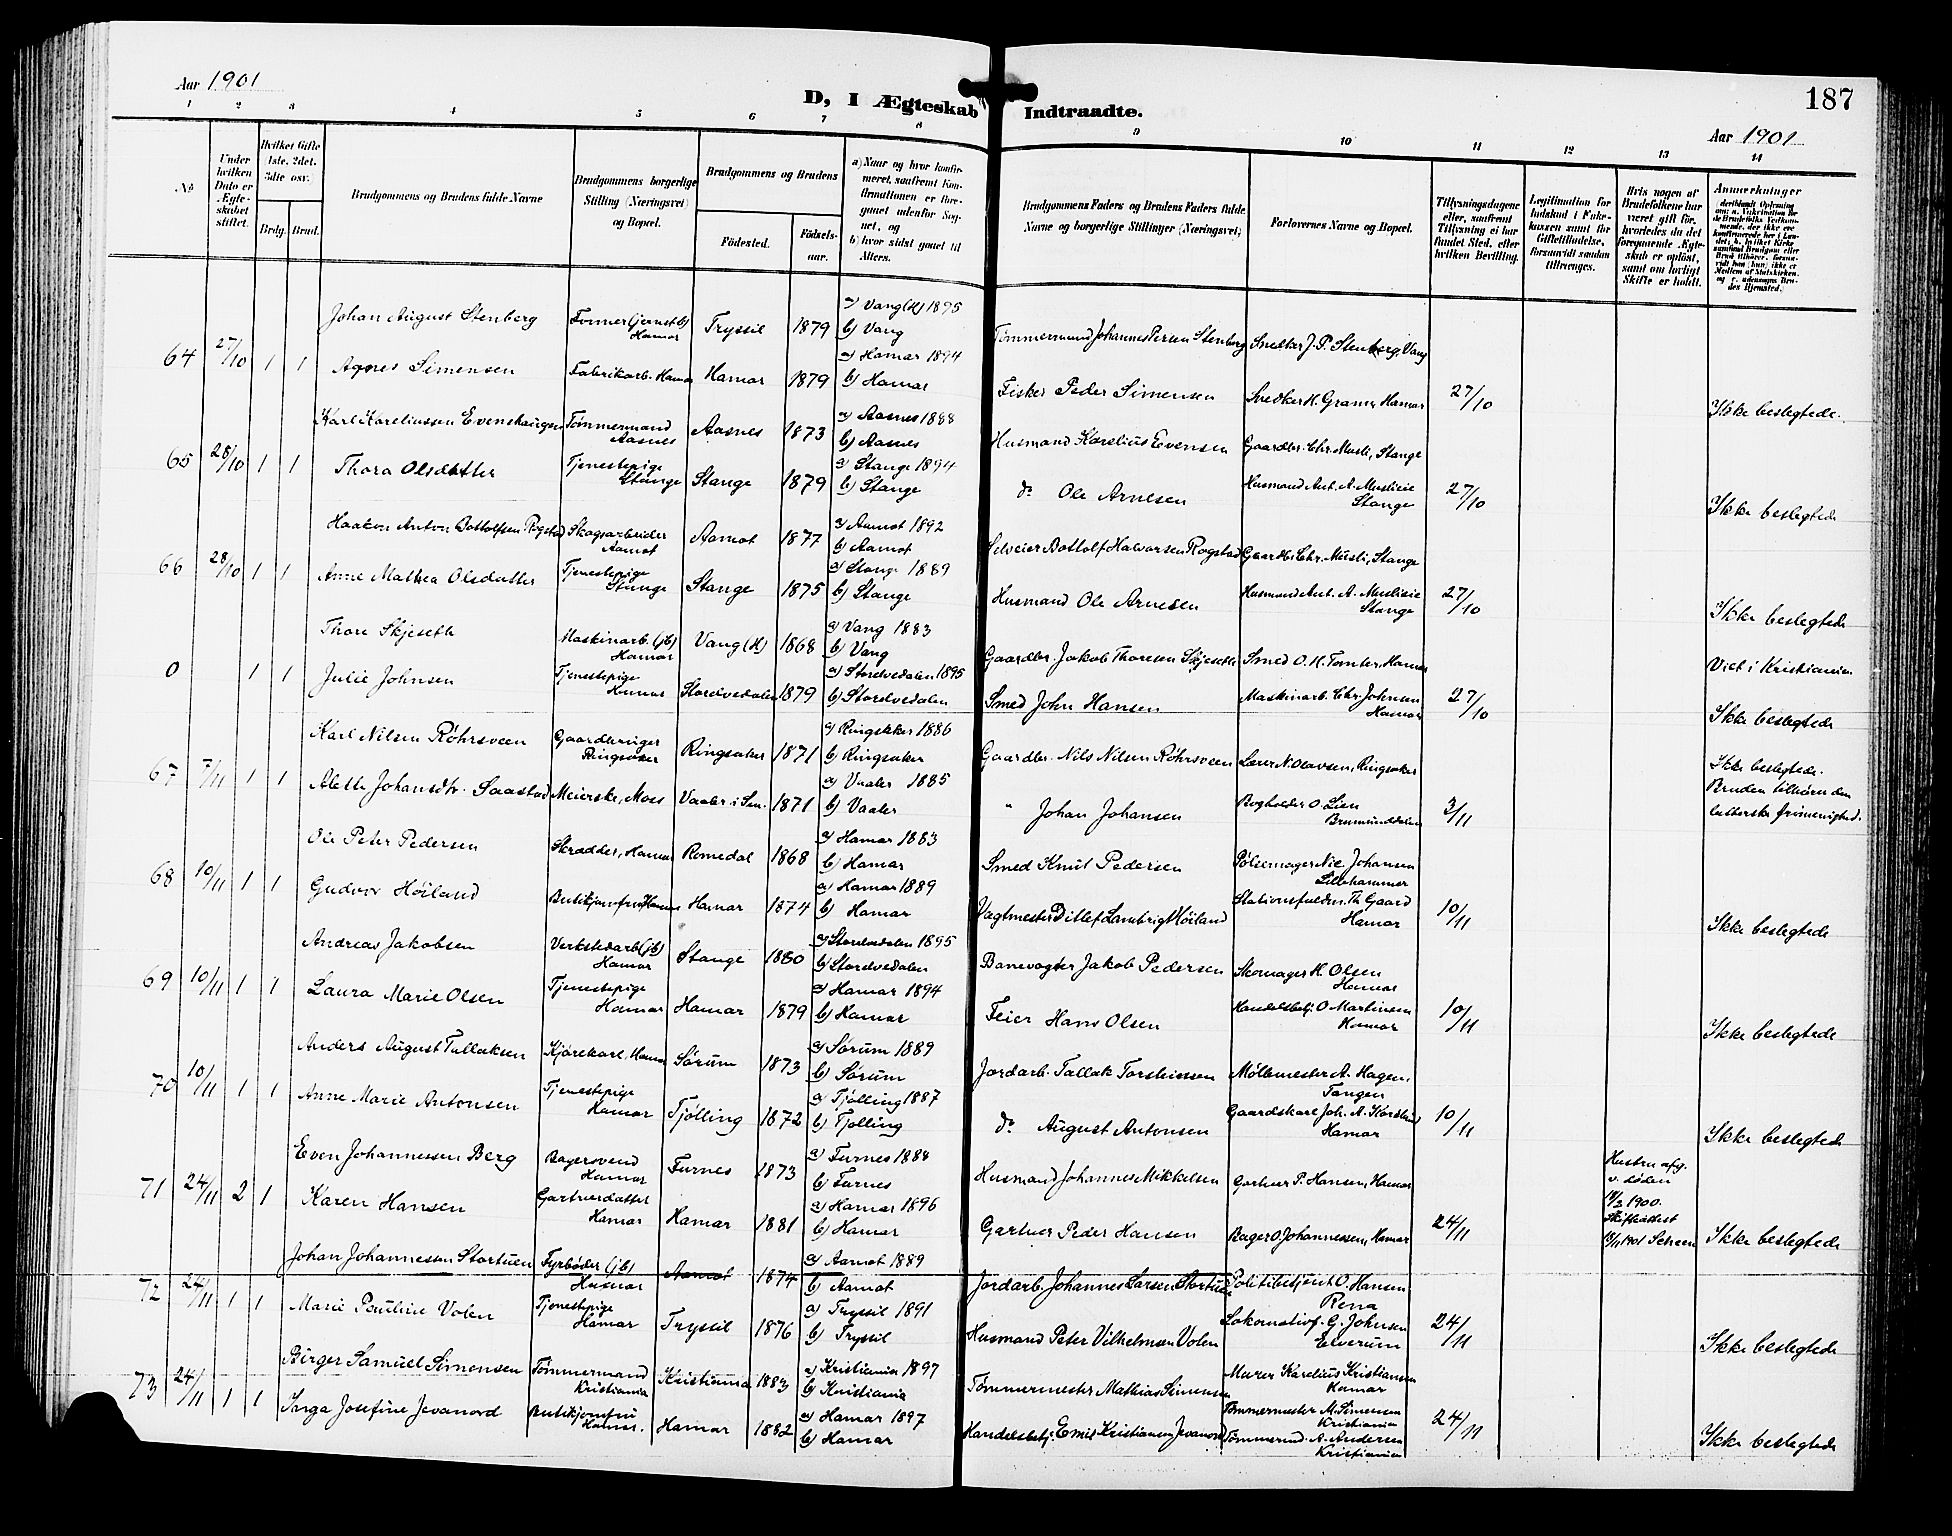 Aar 1901
D, I Ægteskab Indtraadte.
187
Aar 1901
1 2 3 4 5 6 7 8 9 10 11 12 13 14
No
Under hvilken Dato er Ægteskabet stiftet.
Hvilket Gifte 1ste, 2det, 3die osv.)
Brdg. Brud.
Brudgommens og Brudens fulde Navne
Brudgommens borgerlige Stilling (Næringsvei) og Bopæl.
Brudgommens og Brudens
Fødested.
Fødsels-aar.
a) Naar og hvor konfirmeret, saafremt Konfirmationen er foregaaet udenfor Sognet, og
b) hvor sidst gaaet til Alters.
Brudgommens Faders og Brudens Faders fulde Navne og borgerlige Stillinger (Næringsvei)
Forlovernes Navne og Bopæl.
Tillysningsdagene eller, saafremt Tillysning ei har fundet Sted, efter hvilken Bevilling.
Legitimation for Indskud i Enkekassen samt for Giftetilladelse, forsaavidt saadan tiltrænges.
Hvis nogen af Brudefolkene har været gift før, hvorledes da det foregaaende Ægteskab er opløst, samt om lovligt Skifte er holdt.
Anmærkninger
Johan August Stenberg Tømmer (jernstb) Hamar Tryssil 1879 a) Vang (H) 1895 b) Vang Tømmermand Johannes Persen Stenberg Snedker J. P. Stenberg, Vang
64 27/10 1 1 Agnes Simensen Fabrikarb. Hamar Hamar 1879 a) Hamar 1894 b) Hamar Fisker Peder Simensen Snedker H. Gramer Hamar 27/10 Ikke beslegtede.
Karl Kareliussen Evenshaugen Tømmermand Aasnes Aasnes 1873 a) Aasnes 1888 b) Aasnes Husmand Karelius Evensen Gaardbr. Chr. Musli, Stange
65 28/10 1 1 Thora Olsdatter Tjenestepige Stange Stange 1879 a) Stange 1894 b) Stange do Ole Arnesen Husmand Ant. A. Muslieie Stange 27/10 Ikke beslegtede
Haakon Anton Bottolfsen Rogstad Skogsarbeider Aamot Aamot 1877 a) Aamot 1892 b) Aamot Selveier Bottolf Halvorsen Rogstad Gaardb. Chr. Musli, Stange
66 28/10 1 1 Anne Mathea Olsdatter Tjenestepige Stange Stange 1875 a) Stange 1889 b) Stange Husmand Ole Arnesen Husmand Ant. A. Muslieie Stange 27/10 Ikke beslegtede
Thore Skjeseth Maskinarb. (jb) Hamar Vang (H) 1868 a) Vang 1883 b) Vang Gaardbr. Jakob Thoresen Skjeseth Smed O. H. Tomter, Hamar Viet i Kristiania
0 1 1 Julie Johnsen Tjenestepige Hamar Storelvedalen 1879 a) Storelvedalen 1895 b) Storelvedalen Smed John Hansen Maskinarb. Chr. Johnsen Hamar 27/10 Ikke beslegtede
Karl Nilsen Røhrsveen Gaardbruger Ringsaker Ringsaker 1871 a) Ringsaker 1886 b) Ringsaker Gaardbr. Nils Nilsen Røhrsveen Lærer N. Olavsen, Ringsaker Ikke beslegtede.
67 7/11 1 1 Aleth Johansdtr. Saastad Meierske, Moss Vaaler i Sm. 1871 a) Vaaler 1885 b) Vaaler " Johan Johansen Bogholder O. Lien Brumunddalen 3/11 Bruden tilhører den lutherske frimenighed.
Ole Peter Pedersen Skrædder, Hamar Romedal 1868 a) Hamar 1883 b) Hamar Smed Knut Pedersen Pølsemager Nic. Johansen Lillehammer
68 10/11 1 1 Gudvor Høiland Butikjomfru Hamar Hamar 1874 a) Hamar 1889 b) Hamar Vagtmester Ditlef Lambrigt Høiland Stationsfuldm. Th. Gaard Hamar 10/11 Ikke beslegtede
Andreas Jakobsen Verkstedarb (jb) Hamar Stange 1880 a) Storelvedalen 1895 b) Storelvedalen Banevogter Jakob Pedersen Skomager H. Olsen Hamar
69 10/11 1 1 Laura Marie Olsen Tjenestepige Hamar Hamar 1879 a) Hamar 1894 b) Hamar Feier Hans Olsen Handelsbetj. O Martinsen Hamar 10/11 Ikke beslegtede
Anders August Tallaksen Kjørekarl, Hamar Sørum 1873 a) Sørum 1889 b) Sørum Jordarb. Tallak Torsteinsen Møllemester A. Hagen, Tangen
70 10/11 1 1 Anne Marie Antonsen Tjenestepige Hamar Tjølling 1872 a) Tjølling 1887 b) Tjølling do August Antonsen Gaardskarl Joh. A. Korslund Hamar 10/11 Ikke beslegtede
Even Johannessen Berg Bagersvend Hamar Furnes 1873 a) Furnes 1888 b) Furnes Husmand Johannes Mikkelsen Gartner P. Hansen, Hamar Hustru afg. v. døden
71 24/11 2 1 Karen Hansen Gartnerdatter Hamar Hamar 1881 a) Hamar 1896 b) Hamar Gartner Peder Hansen Bager O Johannessen, Hamar 24/11 1900. Skifteattest 1901 Ikke beslegtede
Johan Johannessen Stortuen Fyrbøder (jb) Hamar Aamot 1874 a) Aamot 1889 b) Aamot Jordarb. Johannes Larsen Stortuen Politibetjent O. Hansen Rena
72 24/11 1 1 Marie Pauline Volen Tjenestepige Hamar Tryssil 1876 a) Tryssil 1891 b) Tryssil Husmand Peter Vilhelmsen Volen Lokomotivf. G. Johnsen Elverum 24/11 Ikke beslegtede
Birger Samuel Simensen Tømmermand Kristiania Kristiania 1883 a) Kristiania 1897 b) Kristiania Tømmermester Mathias Simensen Murer Karelius Kristiansen Hamar
73 24/11 1 1 Inga Josefine Jevanord Butikjomfru Hamar. Hamar 1882 a) Hamar 1897 b) Hamar Handelsbetj. Emil Kristiansen Jevanord Tømmermester M. Simensen Kristiania Tømmermd. A. Andersen Kristiania 24/11 Ikke beslegtede